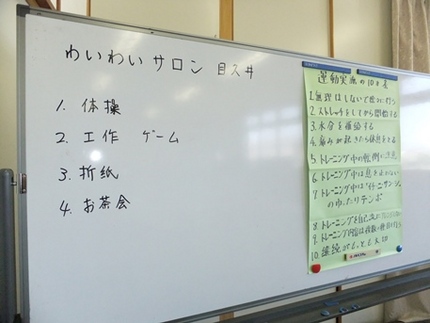 わいわいサロン 目久井
1. 体操
2. 工作 ゲーム
3. 折紙
4. お茶会
運動実施の10ヵ条
1. 無理はしないで
2. ストレッチをしてから開始する
3. 水分を補給する
4. 痛みが起きたら休息をとる
5. トレーニング中の転倒に注意
6. トレーニング中は息を止めない
7. トレーニング中は
のゆったりテンポ
8. トレーニングを
9. トレーニング内容は
10. 継続がもっとも大切